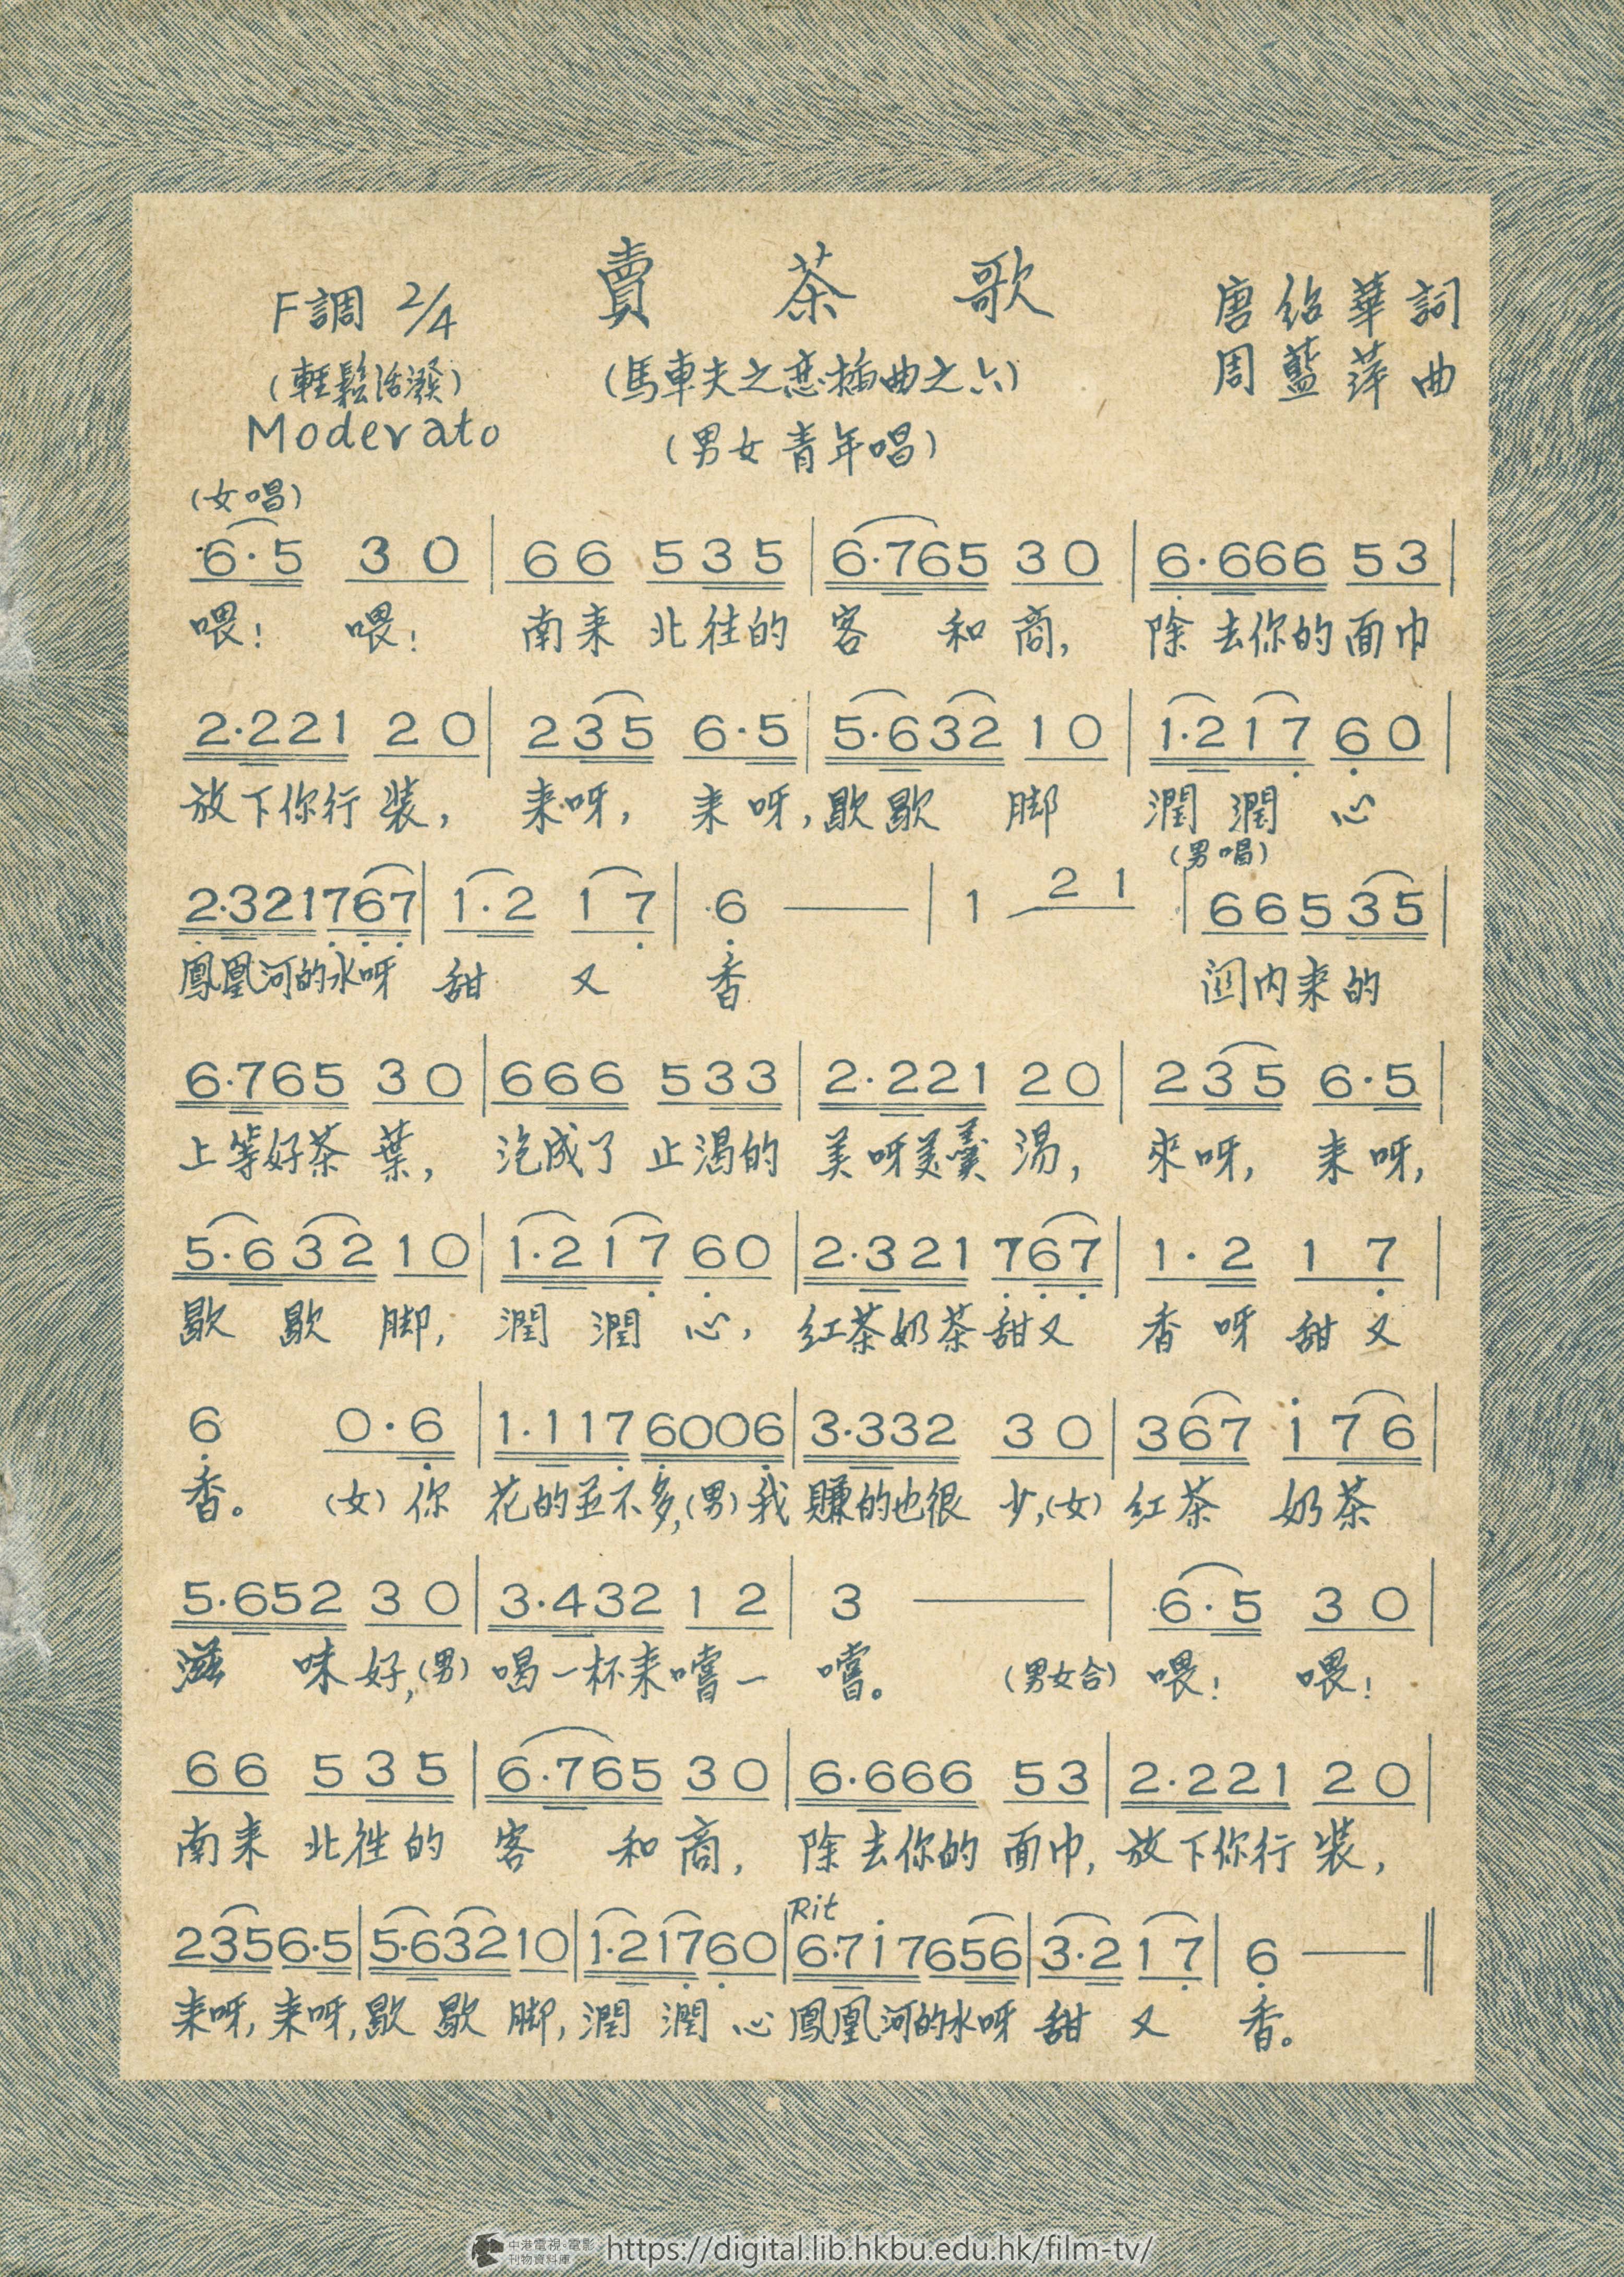 賣茶歌
F調 2/4
唐紹華詞
(輕鬆活潑)
(馬車夫之恋插曲之六)
周藍萍曲
Moderato
(男女青年唱)
(女唱)
6·5 3 0 | 6 6 5 3 5 | 6·7 6 5 3 0 | 6·6 6 6 5 3 |
喂! 喂! 南来北往的客和商, 除去你的面巾
2·2 2 1 2 0 | 2 3 5 6·5 | 5·6 3 2 1 0 | 1·2 1 7 6 0 |
放下你行装, 来呀, 来呀, 歇歇脚 潤潤心
(男唱)
2·3 2 1 7 6 7 | 1·2 1 7 | 6 — | 1 — 2 1 | 6 6 5 3 5 |
鳳凰河的水呀 甜又香 関内来的
6·7 6 5 3 0 | 6 6 6 5 3 3 | 2·2 2 1 2 0 | 2 3 5 6·5 |
上等好茶葉, 泡成了止渴的美呀美羹湯, 來呀, 来呀,
5·6 3 2 1 0 | 1·2 1 7 6 0 | 2·3 2 1 7 6 7 | 1·2 1 7 |
歇歇脚, 潤潤心, 红茶奶茶甜又香呀甜又
6 0·6 | 1·1 1 7 6 0 0 6 | 3·3 3 2 3 0 | 3 6 7 i 7 6 |
香。 (女)你花的並不多,(男)我賺的也很少,(女)红茶奶茶
5·6 5 2 3 0 | 3·4 3 2 1 2 | 3 — | 6·5 3 0 |
滋味好,(男)喝一杯来嚐一嚐。 (男女合)喂! 喂!
6 6 5 3 5 | 6·7 6 5 3 0 | 6·6 6 6 5 3 | 2·2 2 1 2 0 |
南来北往的客和商, 除去你的面巾, 放下你行装,
Rit
2 3 5 6·5 | 5·6 3 2 1 0 | 1·2 1 7 6 0 | 6·7 i 7 6 5 6 | 3·2 1 7 | 6 — ‖
来呀, 来呀, 歇歇脚, 潤潤心 鳳凰河的水呀甜又香。
中港電視·電影
刊物資料庫
https://digital.lib.hkbu.edu.hk/film-tv/